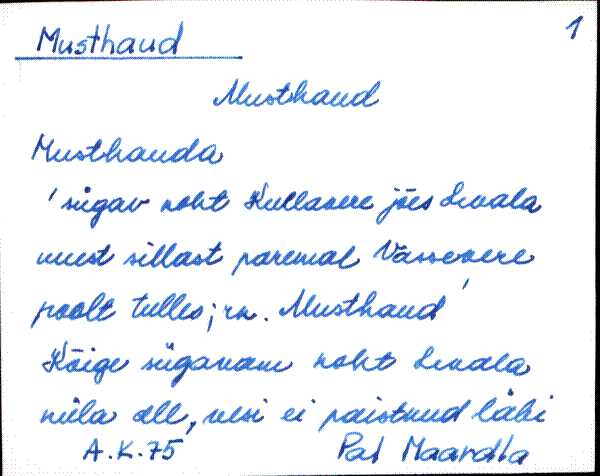 Musthaud
1
Musthaud
Musthauda
'sügav koht Kullavere jões Levala
uuest sillast paremal Vassevere
poolt tulles; rn. Musthaud'
Kõige sügavam koht Levala
küla all, vesi ei paistnud läbi
A.K.75 Pal Maardla